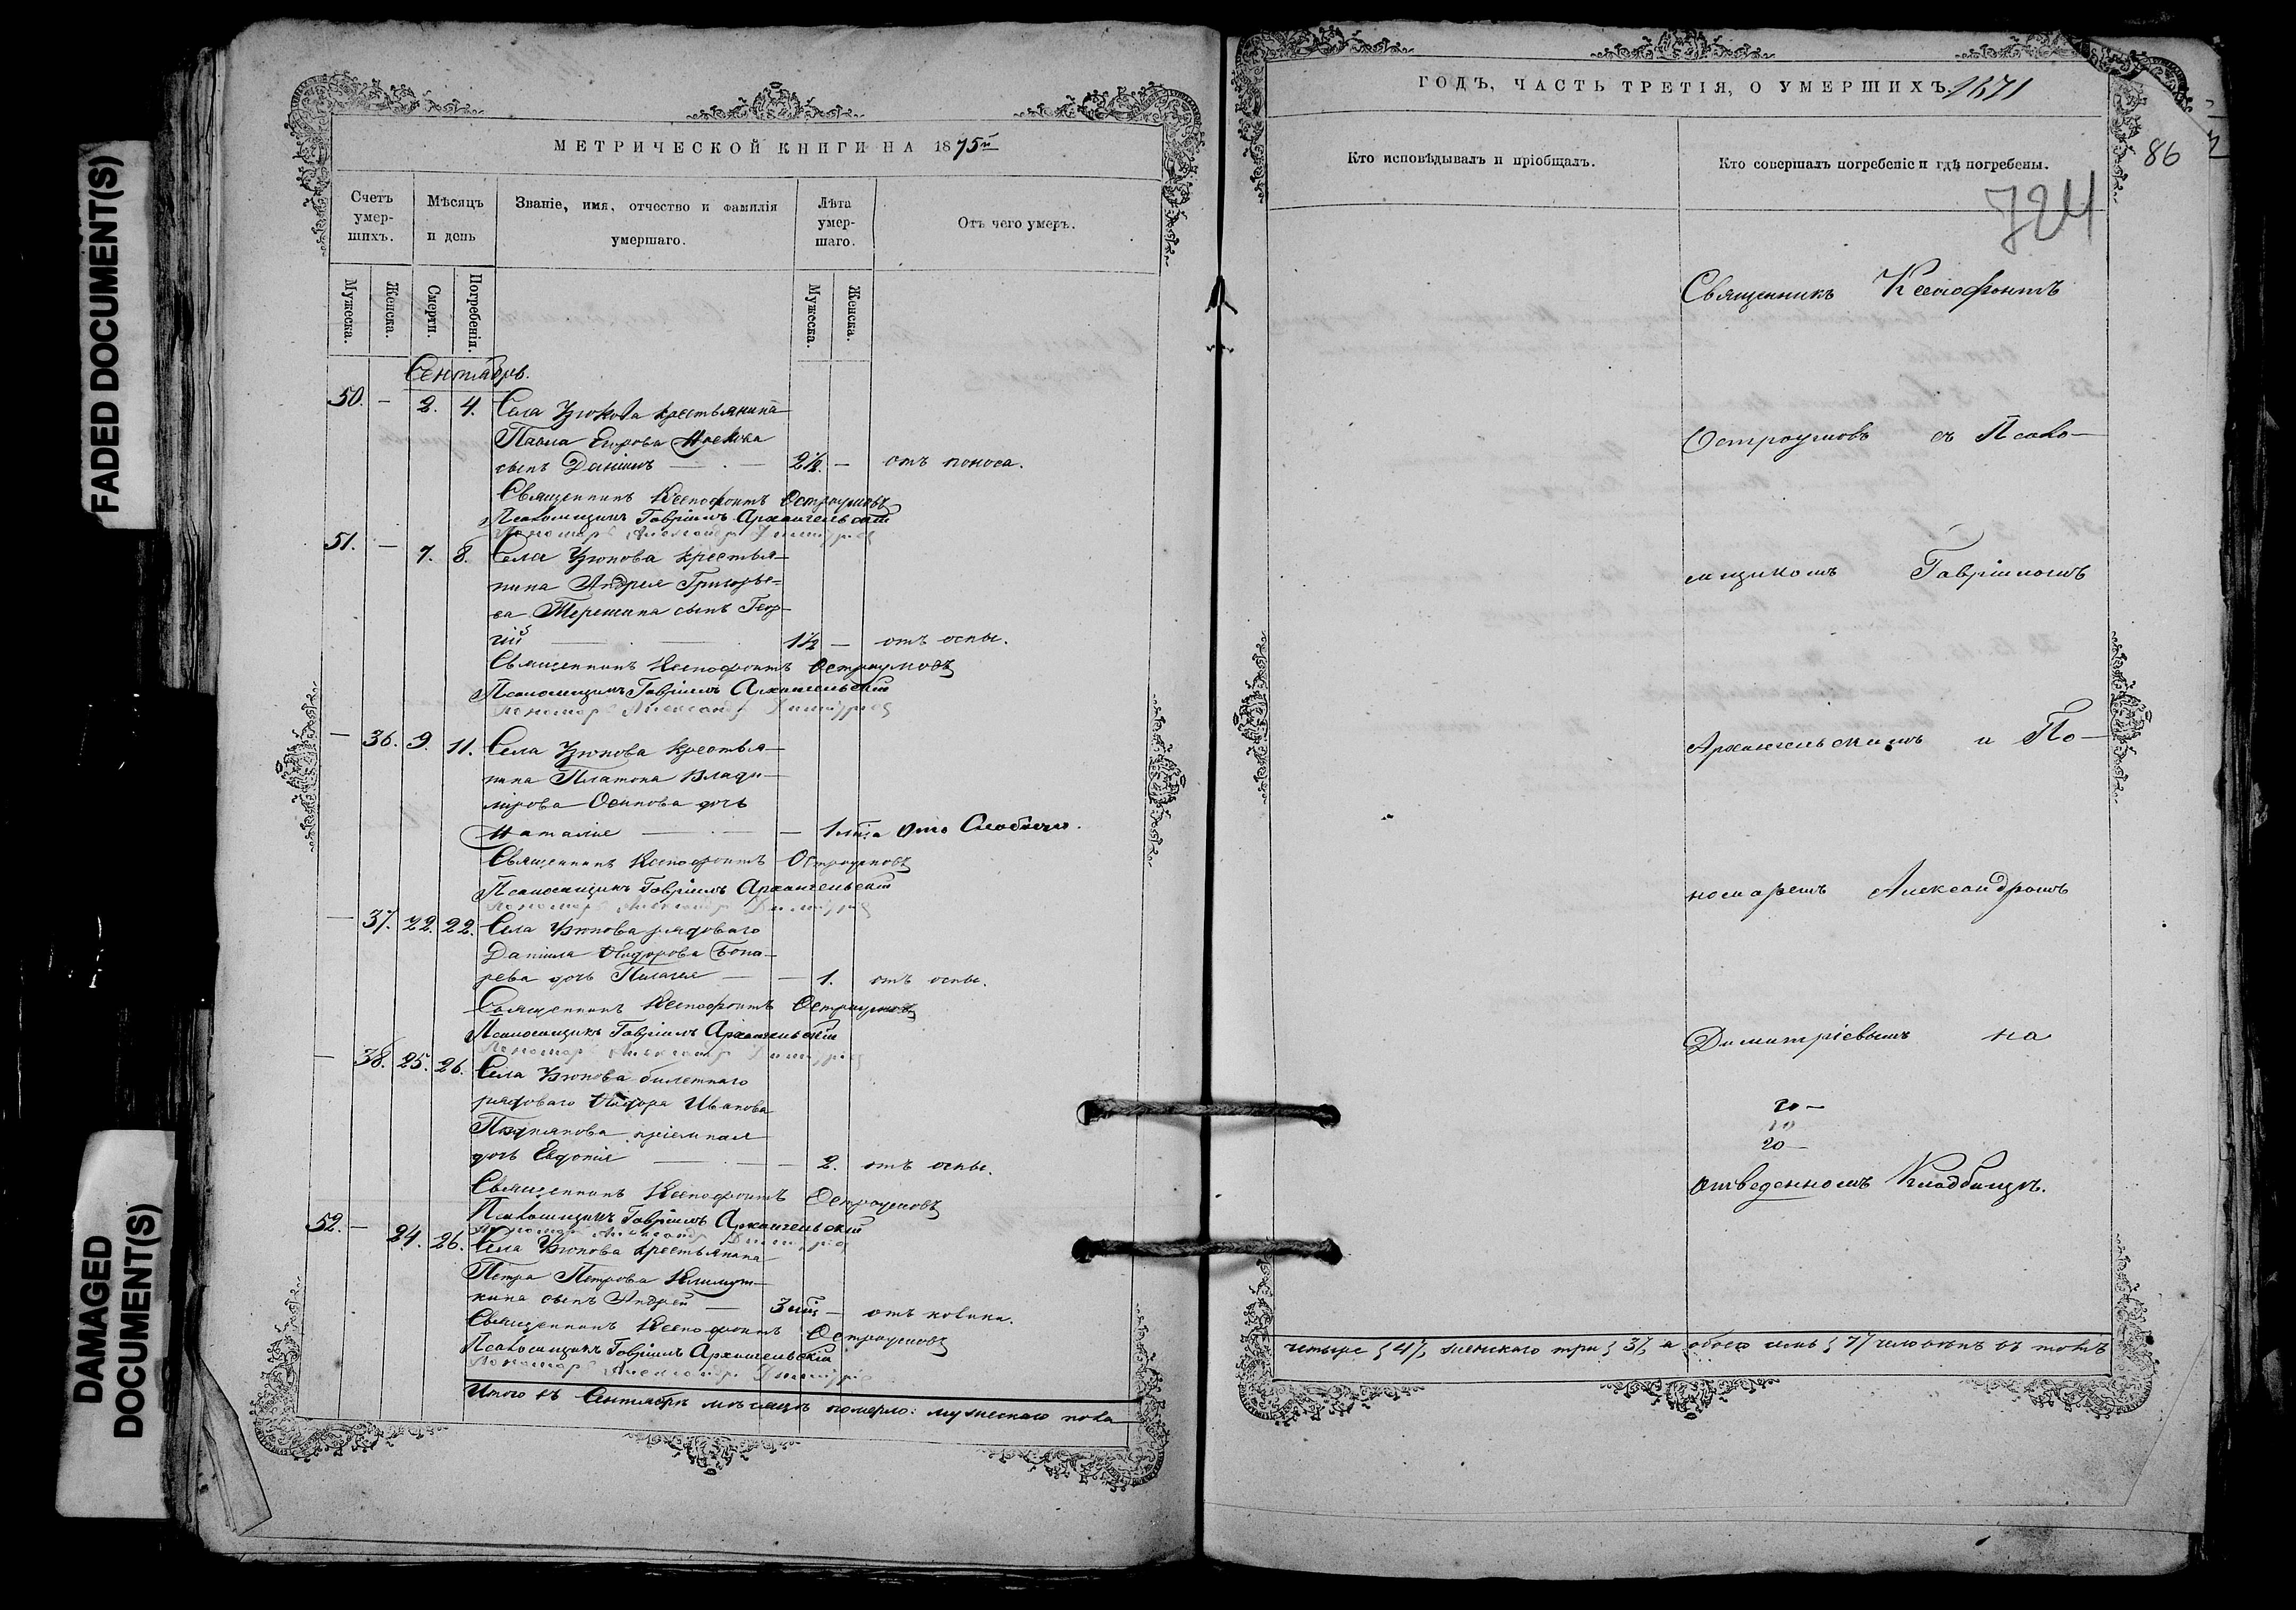 FADED DOCUMENT(S)
DAMAGED
DOCUMENT(S)
МЕТРИЧЕСКОЙ КНИГИ НА 1875й
Счетъ умер-шихъ.
Мѣсяцъ и день
Званіе, имя, отчество и фамилія умершаго.
Лѣта умер-шаго.
Отъ чего умеръ.
Мужеска.
Женска.
Смерти.
Погребенія.
Мужеска.
Женска.
Сентябрь.
50. – 2. 4. Села Узюкова крестьянина
Павла Егорова
сынъ Даніилъ — 2½. – отъ поноса.
Священникъ Ксенофонтъ Остроумовъ
Псаломщикъ Гавріилъ Архангельскій
Пономарь Александръ Димитріев
51. – 7. 8. Села Узюкова крестья-
нина Андрея Григорье-
ва Терешина сынъ Геор-
гій — 1½ – отъ оспы.
Священникъ Ксенофонтъ Остроумовъ
Псаломщикъ Гавріилъ Архангельскій
Пономарь Александръ Димитріев
– 36. 9. 11. Села Узюкова крестья-
нина Платона Влади-
мірова Осипова дочь
Наталія — – 1 отъ
Священникъ Ксенофонтъ Остроумовъ
Псаломщикъ Гавріилъ Архангельскій
Пономарь Александръ Димитріев
– 37. 22. 22. Села Узюкова рядоваго
Даніила
дочь Пелагея — – 1. отъ оспы.
Священникъ Ксенофонтъ Остроумовъ
Псаломщикъ Гавріилъ Архангельскій
Пономарь Александръ Димитріев
– 38. 25. 26. Села Узюкова билетнаго
рядоваго Иванова
пріемная
дочь Евдокія — – 2. отъ оспы.
Священникъ Ксенофонтъ Остроумовъ
Псаломщикъ Гавріилъ Архангельскій
Пономарь Александръ Димитріев
52. – 24. 26. Села Узюкова крестьянина
Петра Петрова Климут-
кина сынъ Андрей — 3 мѣс – отъ колики.
Священникъ Ксенофонтъ Остроумовъ
Псаломщикъ Гавріилъ Архангельскій
Пономарь Александръ Димитріев
Итого въ Сентябрѣ мѣсяцѣ померло: мужескаго пола
ГОДЪ, ЧАСТЬ ТРЕТІЯ, О УМЕРШИХЪ.
86
Кто исповѣдывалъ и пріобщалъ.
Кто совершалъ погребеніе и гдѣ погребены.
724
Священникъ Ксенофонтъ
Остроумовъ съ Псало-
мщикомъ Гавріиломъ
Архангельскимъ и По-
номаремъ Александромъ
Димитріевымъ на
отведенномъ Кладбищѣ.
четыре {4}, женскаго три {3}, а обоего семь {7} человѣкъ въ томъ